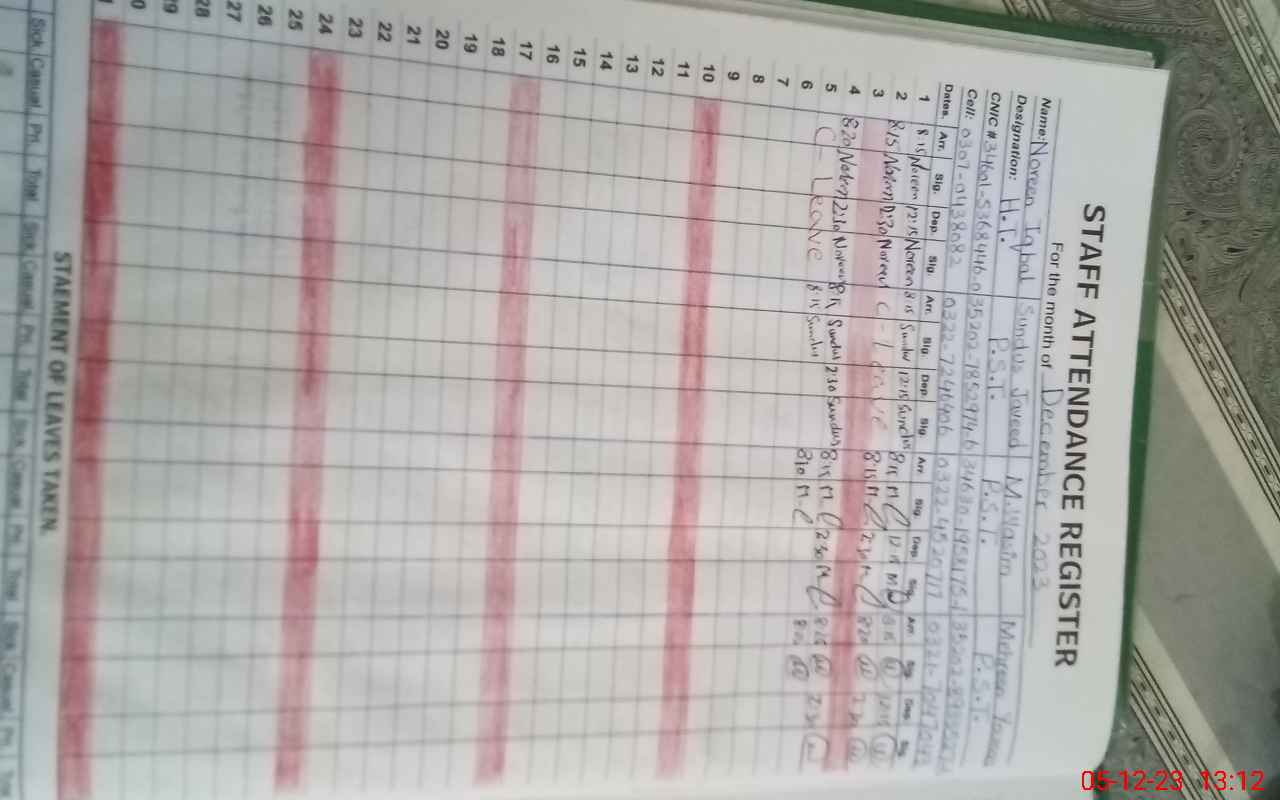 STAFF ATTENDANCE REGISTER
For the month of December 2023
Name: Noreen Iqbal Sundus Javeed M. Wasim Mehreen
Designation: H.T. P.S.T. P.S.T. P.S.T.
CNIC #
Cell: 0307-0438082 0322-7246406 0322-4520717
Dates. Arr. Sig. Dep. Sig. Arr. Sig. Dep. Sig. Arr. Sig. Dep. Sig. Arr. Sig. Dep. Sig.
1 8:15 Noreen 12:15 Noreen 8:15 Sundus 12:15 Sundus 8:15 12:15 8:15 12:15
2 8:15 Noreen 2:30 Noreen C-Leave 8:15 2:30 8:20 2:30
3
4 8:20 Noreen 2:30 Noreen 8:15 Sundus 2:30 Sundus 8:15 2:30 8:15 2:30
5 C-Leave 8:15 Sundus 8:10 8:20
6
7
8
9
10
11
12
13
14
15
16
17
18
19
20
21
22
23
24
25
26
27
28
STAEMENT OF LEAVES TAKEN.
Sick Casual Pri. Total Sick Casual Pri. Total Sick Casual Pri. Total Sick Casual Pri.
05-12-23 13:12